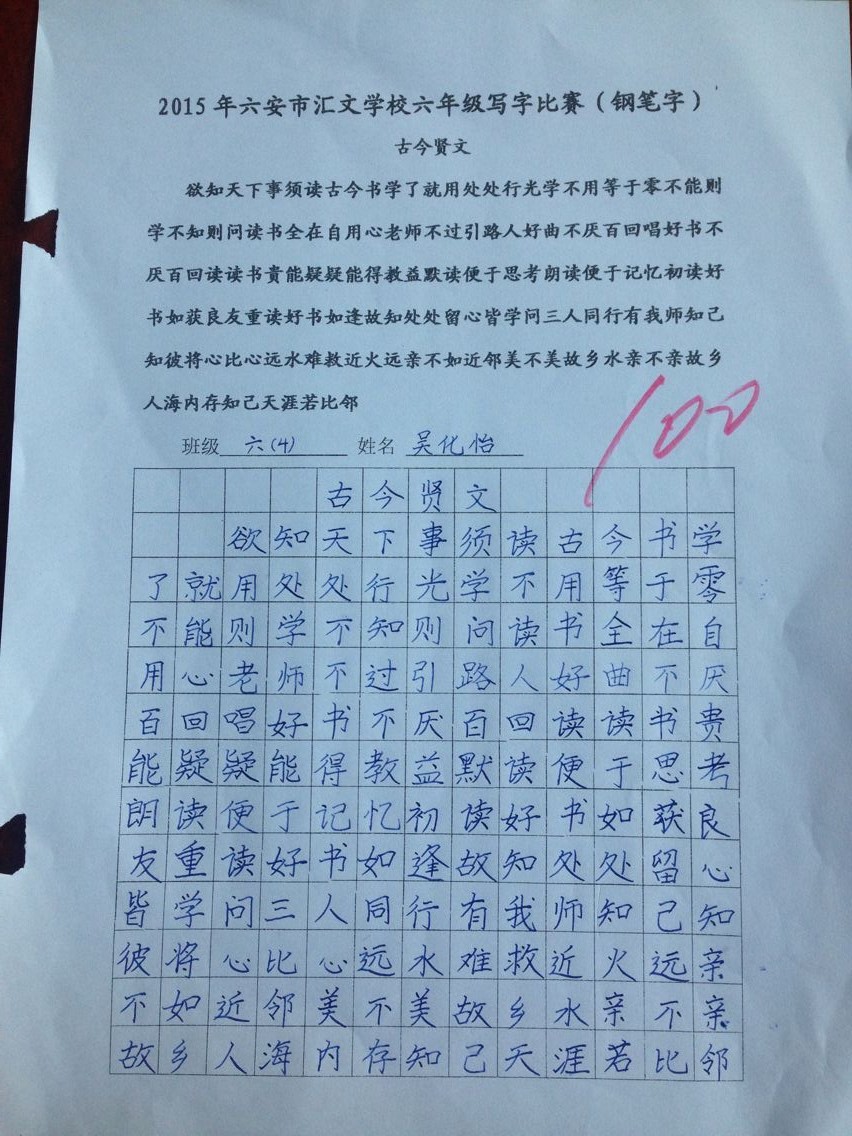 2015年六安市汇文学校六年级写字比赛（钢笔字）
古今贤文
欲知天下事须读古今书学了就用处处行光学不用等于零不能则
学不知则问读书全在自用心老师不过引路人好曲不厌百回唱好书不
厌百回读读书贵能疑疑能得教益默读便于思考朗读便于记忆初读好
书如获良友重读好书如逢故知处处留心皆学问三人同行有我师知己
知彼将心比心远水难救近火远亲不如近邻美不美故乡水亲不亲故乡
人海内存知己天涯若比邻
100
班级 六(4) 姓名 吴化怡
古今贤文
欲知天下事须读古今书学
了就用处处行光学不用等于零
不能则学不知则问读书全在自
用心老师不过引路人好曲不厌
百回唱好书不厌百回读读书贵
能疑疑能得教益默读便于思考
朗读便于记忆初读好书如获良
友重读好书如逢故知处处留心
皆学问三人同行有我师知己知
彼将心比心远水难救近火远亲
不如近邻美不美故乡水亲不亲
故乡人海内存知己天涯若比邻